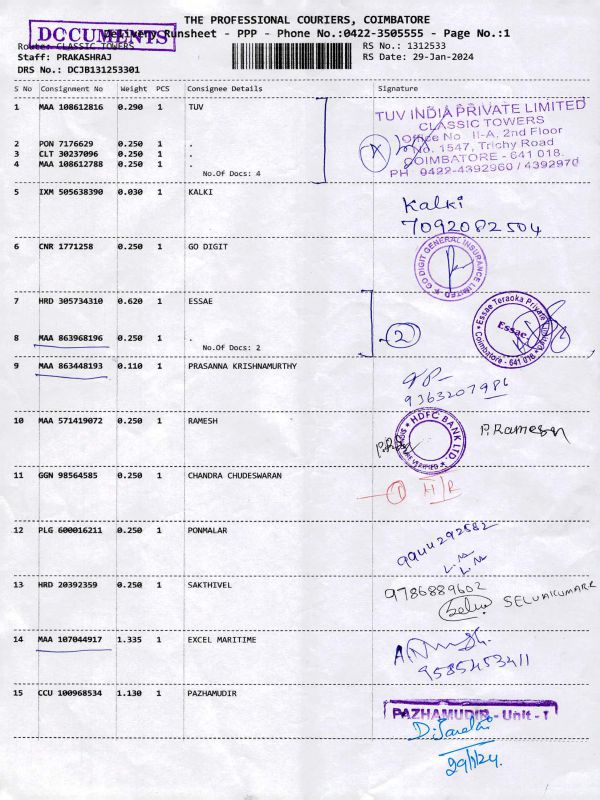 THE PROFESSIONAL COURIERS, COIMBATORE
DOCUMENTS
Delivery Runsheet - PPP - Phone No.:0422-3505555 - Page No.:1
Route: CLASSIC TOWERS
RS No.: 1312533
Staff: PRAKASHRAJ
RS Date: 29-Jan-2024
DRS No.: DCJB131253301
S No Consignment No Weight PCS Consignee Details Signature
1 MAA 108612816 0.290 1 TUV
2 PON 7176629 0.250 1 .
3 CLT 30237096 0.250 1 .
4 MAA 108612788 0.250 1 .
No.Of Docs: 4
TUV INDIA PRIVATE LIMITED
CLASSIC TOWERS
Office No. II-A, 2nd Floor
No. 1547, Trichy Road
COIMBATORE - 641 018.
PH 0422-4392960 / 4392970
5 IXM 505638390 0.030 1 KALKI
Kalki
7092082504
6 CNR 1771258 0.250 1 GO DIGIT
GO DIGIT GENERAL INSURANCE LIMITED
7 HRD 305734310 0.620 1 ESSAE
8 MAA 863968196 0.250 1 .
No.Of Docs: 2
2
Essae Teraoka Private
Essae
Coimbatore - 641 018
9 MAA 863448193 0.110 1 PRASANNA KRISHNAMURTHY
9363207986
10 MAA 571419072 0.250 1 RAMESH
HDFC BANK LTD
P.Ramesh
11 GGN 98564585 0.250 1 CHANDRA CHUDESWARAN
1 H/R
12 PLG 600016211 0.250 1 PONMALAR
9944292582
13 HRD 20392359 0.250 1 SAKTHIVEL
9786889602
Selva SELVAKUMARR
14 MAA 107044917 1.335 1 EXCEL MARITIME
9585453411
15 CCU 100968534 1.130 1 PAZHAMUDIR
PAZHAMUDIR - Unit - 1
29/1/24.